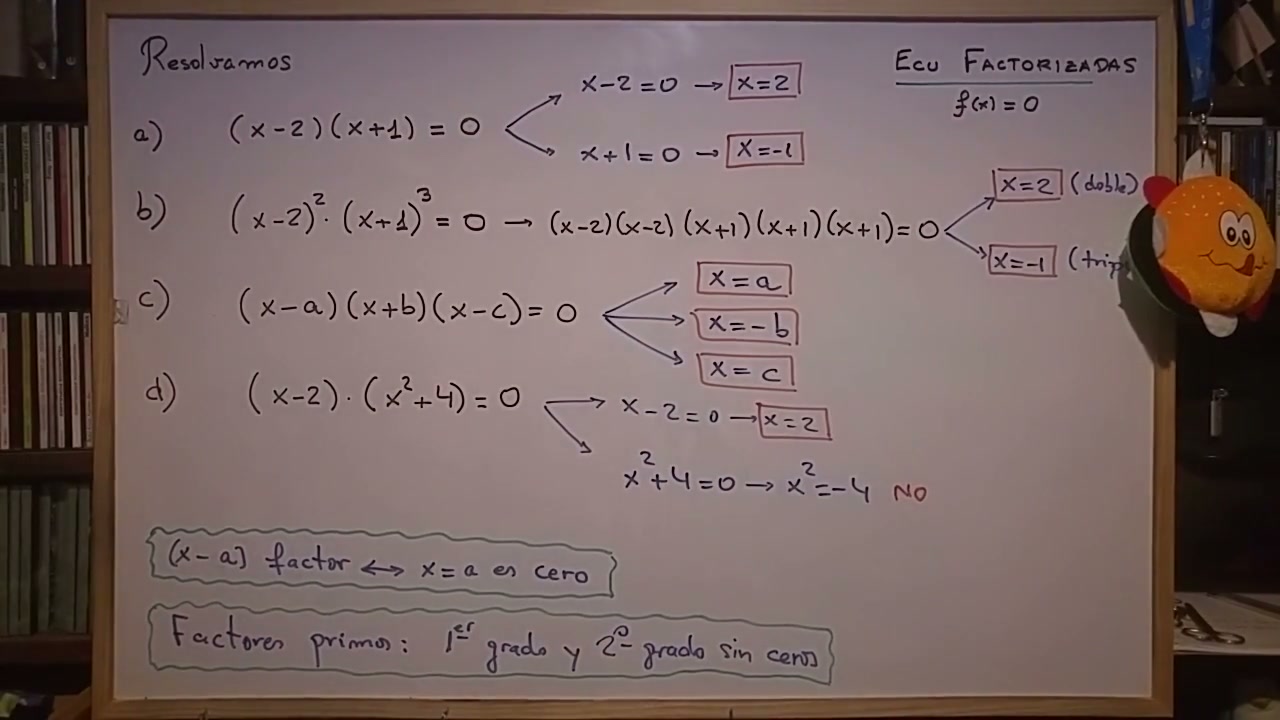 Resolvamos
ECU FACTORIZADAS
f(x) = 0
a) (x-2)(x+1) = 0
x-2=0 → x=2
x+1=0 → x=-1
b) (x-2)²·(x+1)³ = 0 → (x-2)(x-2)(x+1)(x+1)(x+1)=0
x=2 (doble)
x=-1 (trip
c) (x-a)(x+b)(x-c)=0
x=a
x=-b
x=c
d) (x-2)·(x²+4)=0
x-2=0 → x=2
x²+4=0 → x²=-4 NO
(x-a) factor ↔ x=a es cero
Factores primos: 1er grado y 2º grado sin ceros